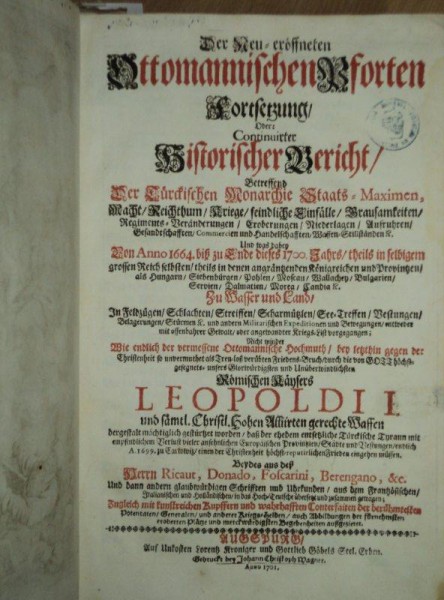 Der Neu-eröffneten
Ottomannischen Pforten
Fortsetzung/
Oder:
Continuirter
Historischer Bericht/
Betreffend
Der Türckischen Monarchie Staats-Maximen,
Macht/ Reichthum/ Kriege/ feindliche Einfälle/ Grausamkeiten/
Regiments-Veränderungen/ Eroberungen/ Niederlagen/ Aufruhren/
Gesandtschafften/ Commercien und Handelschafften/ Waffen-Stillständen &c.
Und was dabey
Von Anno 1664. biß zu Ende dieses 1700. Jahrs/ theils in selbigem
grossen Reich selbsten/ theils in denen angräntzenden Königreichen und Provintzen/
als Hungarn/ Siebenbürgen/ Pohlen/ Moscau/ Wallachey/ Bulgarien/
Servien/ Dalmatien/ Morea/ Candia &c.
Zu Wasser und Land/
In Feldzügen/ Schlachten/ Streiffen/ Scharmützlen/ See-Treffen/ Vestungen/
Belagerungen/ Stürmen &c. und andern Militarischen Expeditionen und Bewegungen/ entweder
mit offenbahrer Gewalt/ oder angewandter Kriegs-List vorgegangen:
Nicht weniger
Wie endlich der vermessene Ottomannische Hochmuth/ bey letzthin gegen der
Christenheit so unvermuthet als Treu-loß verübten Friedens-Bruch/ durch die von GOTT höchst-
gesegnete unsers Glorwürdigsten und Unüberwindlichsten
Römischen Käysers
LEOPOLDI I.
und sämtl. Christl. Hohen Alliirten gerechte Waffen
dergestalt mächtiglich gestürtzet worden/ daß der ehedem entsetzliche Türckische Tyrann mit
empfindlichem Verlust vieler ansehnlichen Europäischen Provintzien/ Städte und Vestungen/ endlich
A. 1699. zu Carlowitz/ einen der Christenheit höchst-reputirlichen Frieden eingehen müssen.
Beydes aus deß
Herrn Ricaut, Donado, Foscarini, Berengano, &c.
Und dann andern glaubwürdigen Schrifften und Uhrkunden/ aus dem Frantzösischen/
Italiänischen und Holländischen/ in das Hoch-Teutsche übersetzt und zusamm getragen;
Zugleich mit kunstreichen Kupffern und wahrhafften Conterfaiten der berühmtesten
Potentaten/ Generalen/ und anderer Kriegs-Helden/ auch Abbildungen der fürnehmsten
eroberten Plätze und merckwürdigsten Begebenheiten außgezieret.
AUGSPURG/
Auf Unkosten Lorentz Kroniger und Gottlieb Göbels Seel. Erben.
Gedruckt bey Johann Christoph Wagner.
Anno 1701.